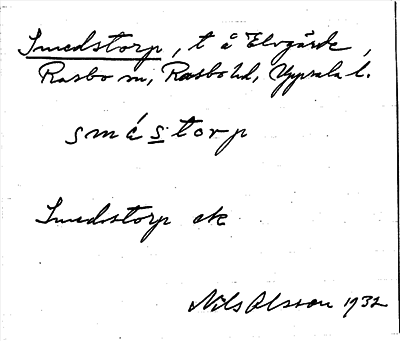 Smedstorp, t å Elvgärde,
Rasbo sn, Rasbo hd, Uppsala l.
smé̀storp
Smedstorp ek
Nils Olsson 1932